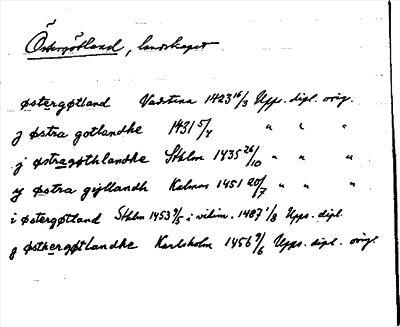 Östergötland, landskapet
østergøtland Vadstena 1423 16/3 Upps. dipl. orig.
j østra gotlandhe 1431 5/4 " " "
j østragøthlandhe Sthlm 1435 26/10 " " "
y østra gyllandh Kalmar 1451 20/7 " " "
i østergøtland Sthlm 1453 9/5 i vidim. 1487 1/8 Upps. dipl.
y østhergøtlandhe Karlsholm 1456 9/6 Upps. dipl. orig.